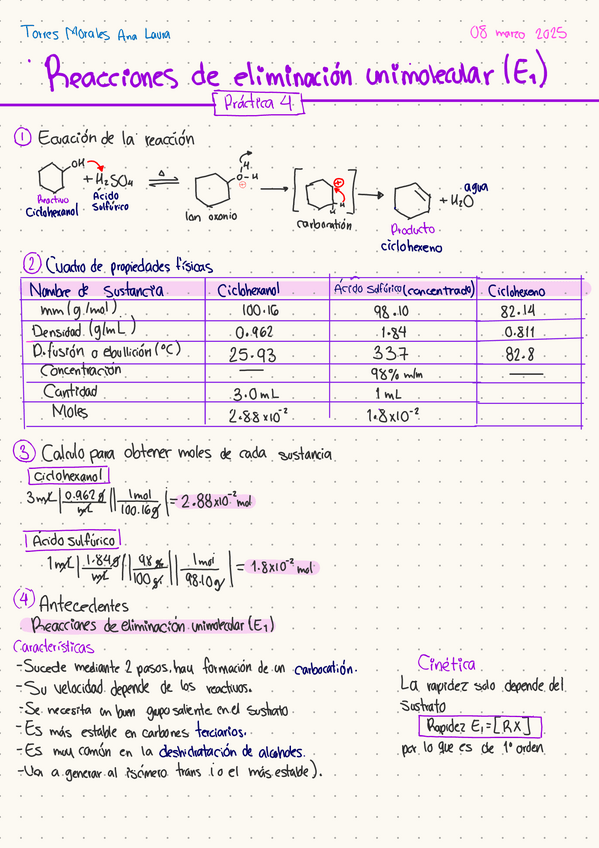 Torres Morales Ana Laura
08 marzo 2025
Reacciones de eliminación unimolecular (E₁)
Práctica 4
① Ecuación de la reacción
OH + H₂SO₄ Δ H O-H ⊕ ⊕ H + H₂O agua
Reactivo Ácido
Ciclohexanol Sulfúrico
Ion oxonio
carbocatión
Producto
ciclohexeno
② Cuadro de propiedades físicas
Nombre de Sustancia Ciclohexanol Ácido Sulfúrico (concentrado) Ciclohexeno
mm (g/mol) 100.16 98.10 82.14
Densidad (g/mL) 0.962 1.84 0.811
D. fusión o ebullición (°C) 25.93 337 82.8
Concentración — 98% m/m —
Cantidad 3.0 mL 1 mL
Moles 2.88x10⁻² 1.8x10⁻²
③ Calculo para obtener moles de cada sustancia
Ciclohexanol
3mL | 0.962 g / mL || 1mol / 100.16g | = 2.88x10⁻² mol
Ácido sulfúrico
1mL | 1.84g / mL || 98 g / 100 g || 1mol / 98.10g | = 1.8x10⁻² mol
④ Antecedentes
Reacciones de eliminación unimolecular (E₁)
Características
-Sucede mediante 2 pasos, hay formación de un carbocatión.
-Su velocidad depende de los reactivos.
-Se necesita un buen grupo saliente en el sustrato
-Es más estable en carbones terciarios.
-Es muy común en la deshidratación de alcoholes.
-Va a generar al isómero trans (o el más estable).
Cinética
La rapidez solo depende del
Sustrato
Rapidez E₁=[RX]
por lo que es de 1° orden